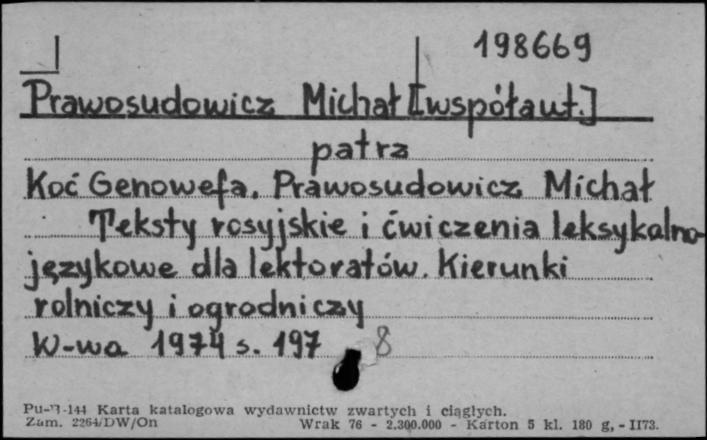 198669
Prawosudowicz Michał [współaut.]
patrz
Koć Genowefa. Prawosudowicz Michał
Teksty rosyjskie i ćwiczenia leksykalno-
językowe dla lektoratów. Kierunki
rolniczy i ogrodniczy
W-wa 1974 s. 197
8
Pu-B-144 Karta katalogowa wydawnictw zwartych i ciągłych.
Zam. 2264/DW/On Wrak 76 - 2.300.000 - Karton 5 kl. 180 g, - II73.